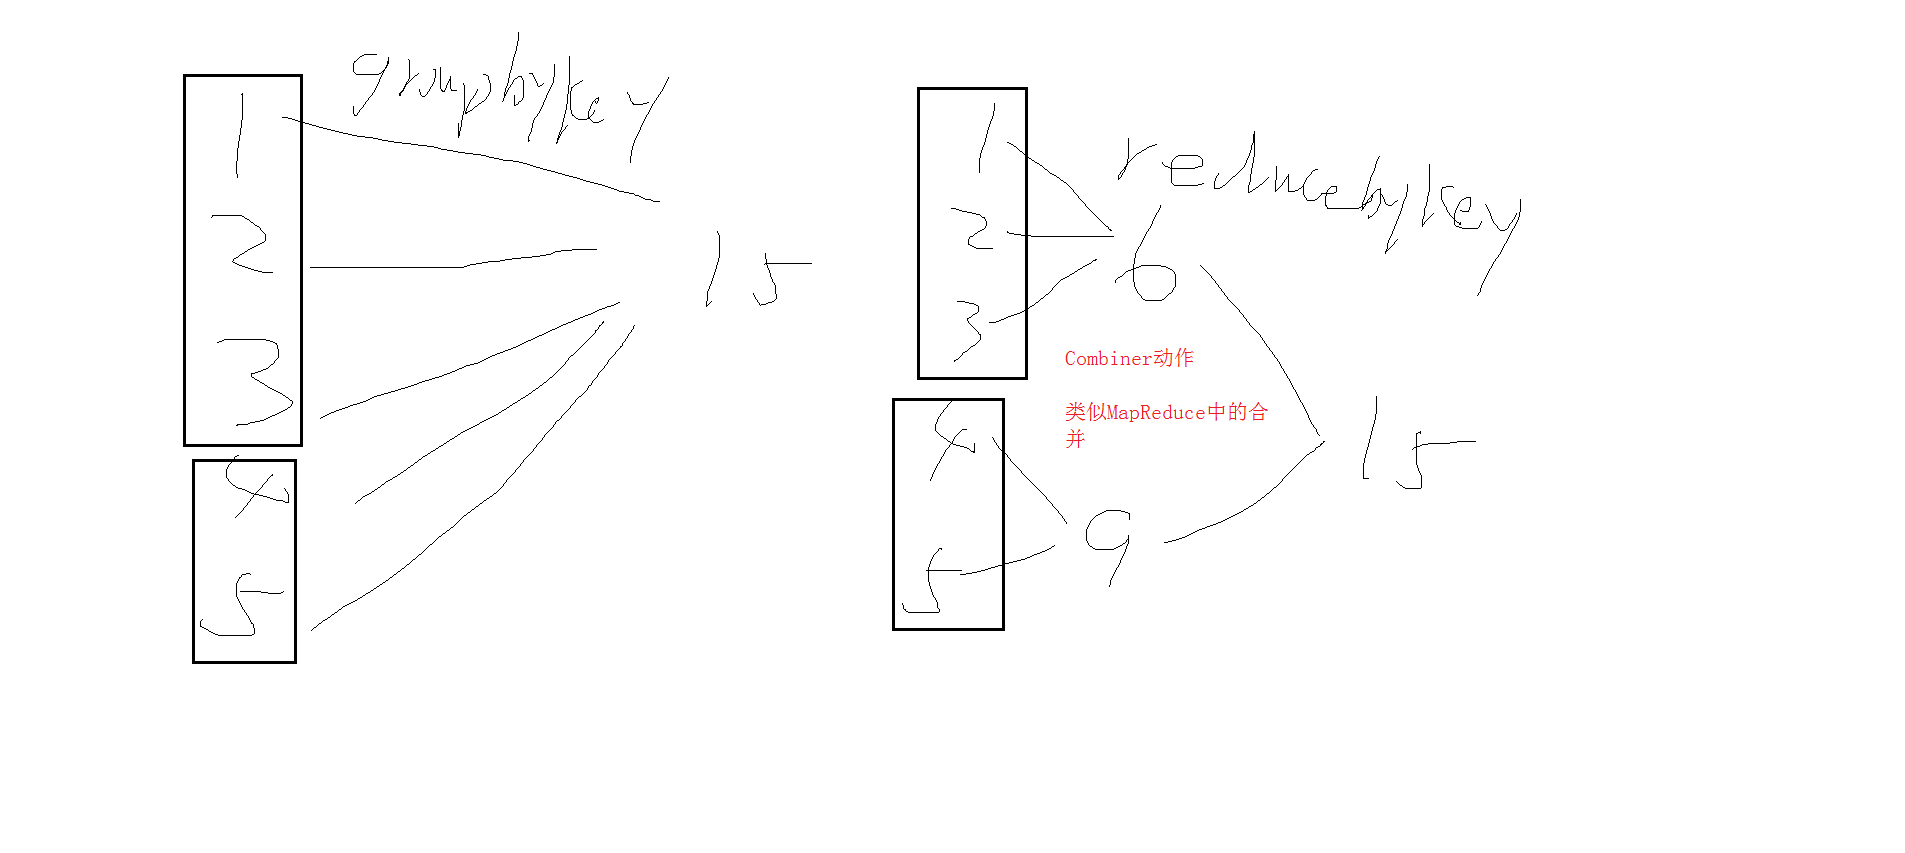 groupbykey
1
2
3
4
5
15
reducebykey
1
2
3
6
Combiner动作
类似MapReduce中的合
并
4
5
9
15